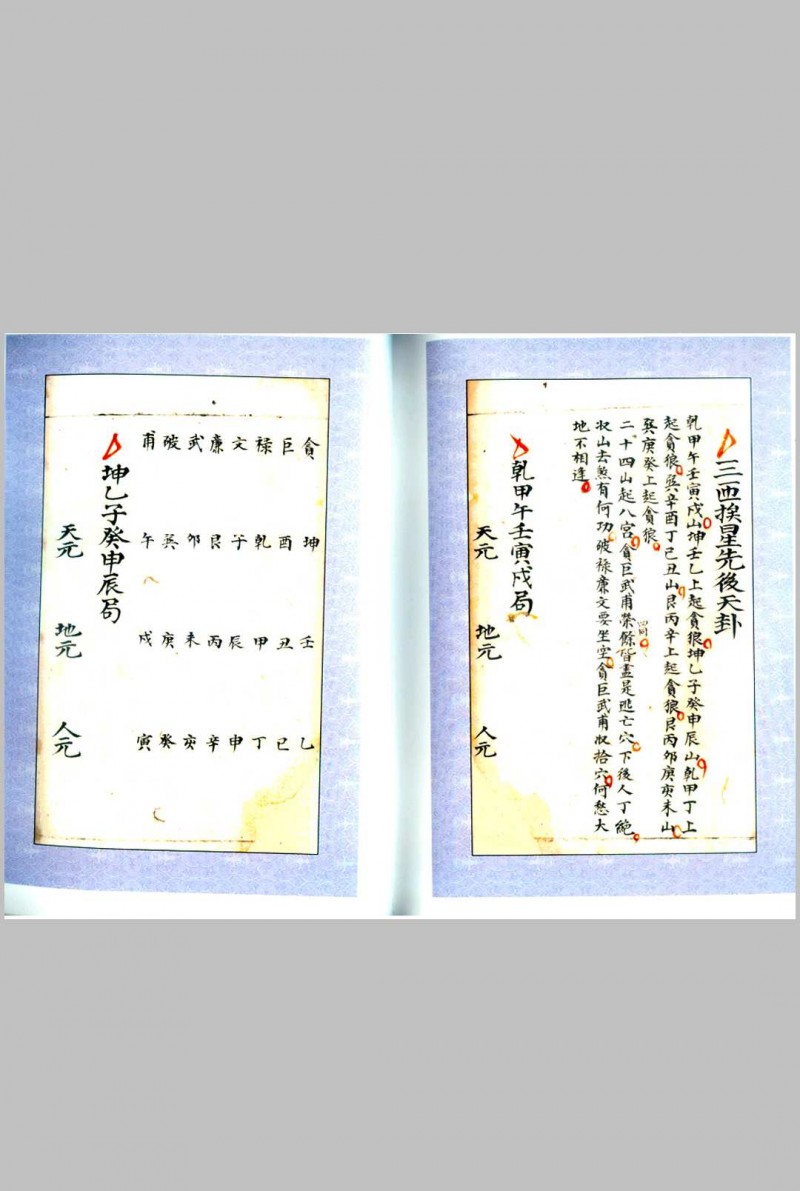 三挨星先後天卦
乾甲午壬寅戍山坤壬乙上起貪狼坤乙子癸申辰山乾甲丁上
起貪狼巽辛酉丁己丑山艮丙辛上起貪狼艮丙夘庚亥未山
巽庚癸上起貪狼
二十四山起八宮貪巨武甫榮餘皆盡是逃亡穴下後人丁絶
収山去煞有何功破禄廉文要坐空貪巨武甫収拾穴何愁大
地不相逢
乾甲午壬寅戍局
天元 地元 人元
貪 坤 壬 乙
巨 酉 丑 己
禄 乾 甲 丁
文 子 辰 申
廉 艮 丙 辛
武 夘 未 亥
破 巽 庚 癸
甫 午 戍 寅
坤乙子癸申辰局
天元 地元 人元